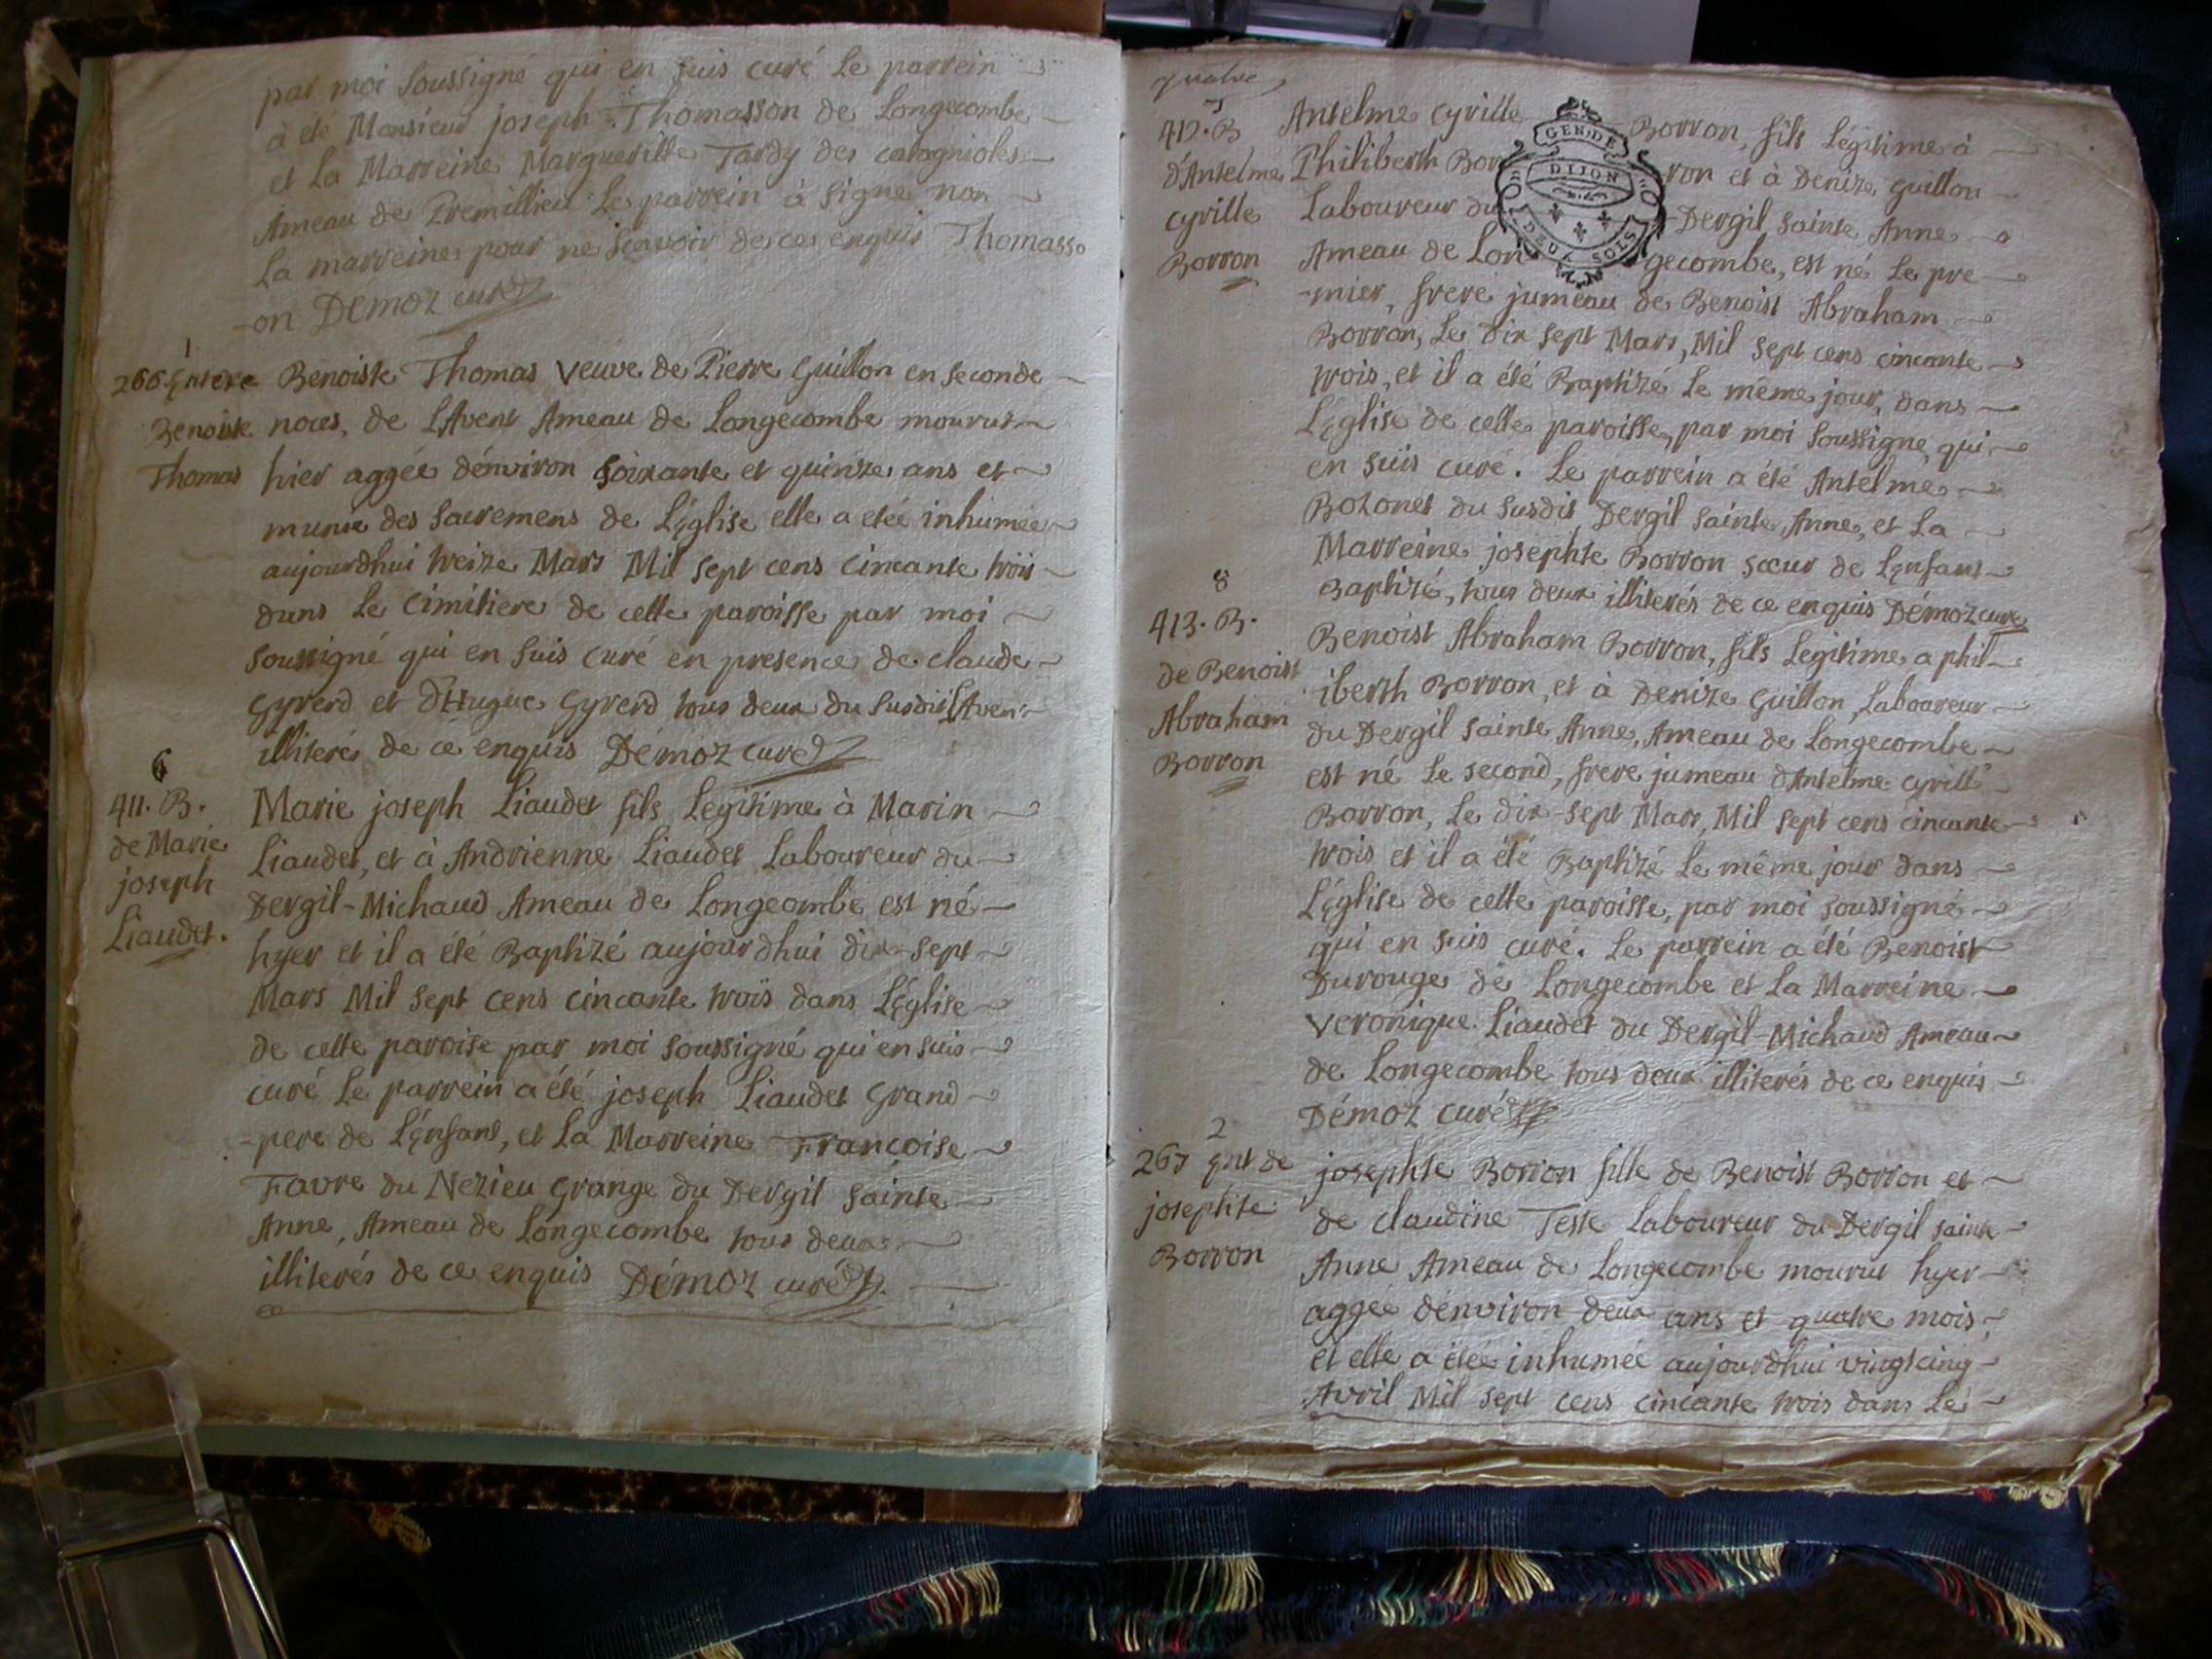 par moi soussigné qui en suis curé Le parrein
à eté Monsieur joseph Thomasson de Longecombe
et La Marreine Margueritte Tardy des catagnioles
Ameau de Premillieu Le parrein à signé non
La marreine pour ne scavoir de ce enquis Thomasso
-on Démoz curé
1
266. Enterre
Benoiste
Thomas
Benoiste Thomas veuve de Pierre Guillon en seconde
noces, de LAvent Ameau de Longecombe mourut
hier aggée dénviron soixante et quinze ans et
munie des sacremens de LÉglise elle a etée inhumée
aujourdhui treize Mars Mil sept cens cincante trois
dans Le Cimitiere de cette paroisse par moi
soussigné qui en suis curé en presence de claude
Gyrerd et d'Hugue Gyrerd tous deux du susdit LAvent
illiterés de ce enquis Démoz curé
6
411. B.
de Marie
joseph
Liaudet.
Marie joseph Liaudet fils Legitime à Marin
Liaudet, et à Andrienne Liaudet Laboureur du
Dergil-Michaud Ameau de Longecombe est né
hyer et il a été Baptizé aujourdhui dix-sept
Mars Mil sept cens cincante trois dans LÉglise
de cette paroise par moi soussigné qui en suis
curé Le parrein a été joseph Liaudet Grand
-pere de LÉnfant, et La Marreine Francoise
Favre du Nezieu Grange du Dergil sainte
Anne, Ameau de Longecombe tous deux
illiterés de ce enquis Démoz curé
quatre
7
412. B
d'Antelme
cyrille
Borron
GEN. DE
DIJON
DEUX SOLS
Antelme cyrille Borron, fils Légitime à
Philiberth Borron et à Denize Guillon
Laboureur du Dergil sainte Anne
Ameau de Longecombe, est né Le pre
-mier, frere jumeau de Benoist Abraham
Borron, Le dix sept Mars, Mil sept cens cincante
trois, et il a été Baptizé Le même jour, dans
LÉglise de cette paroisse, par moi soussigné qui
en suis curé. Le parrein a été Antelme
Bozonet du susdit Dergil sainte Anne, et La
Marreine josephte Borron sœur de LEnfant
Baptizé, tous deux illiterés de ce enquis Démoz curé
8
413. B.
de Benoist
Abraham
Borron
Benoist Abraham Borron, fils Legitime a phil
iberth Borron, et à Denize Guillon, Laboureur
du Dergil sainte Anne, Ameau de Longecombe
est né Le second, frere jumeau d'Antelme cyrille
Borron, Le dix-sept Mars, Mil sept cens cincante
trois et il a été Baptizé Le même jour dans
LÉglise de cette paroisse, par moi soussigné
qui en suis curé. Le parrein a été Benoist
Durouge de Longecombe et La Marreine
veronique Liaudet du Dergil-Michaud Ameau
de Longecombe tous deux illiterés de ce enquis
Démoz curé
2
267 Ent de
josephte
Borron
josephte Borron fille de Benoist Borron et
de claudine Teste Laboureur du Dergil sainte
Anne Ameau de Longecombe mourut hyer
aggée dénviron deux ans et quatre mois
et elle a étée inhumée aujourdhui vingtcinq
Avril Mil sept cens cincante trois dans Le